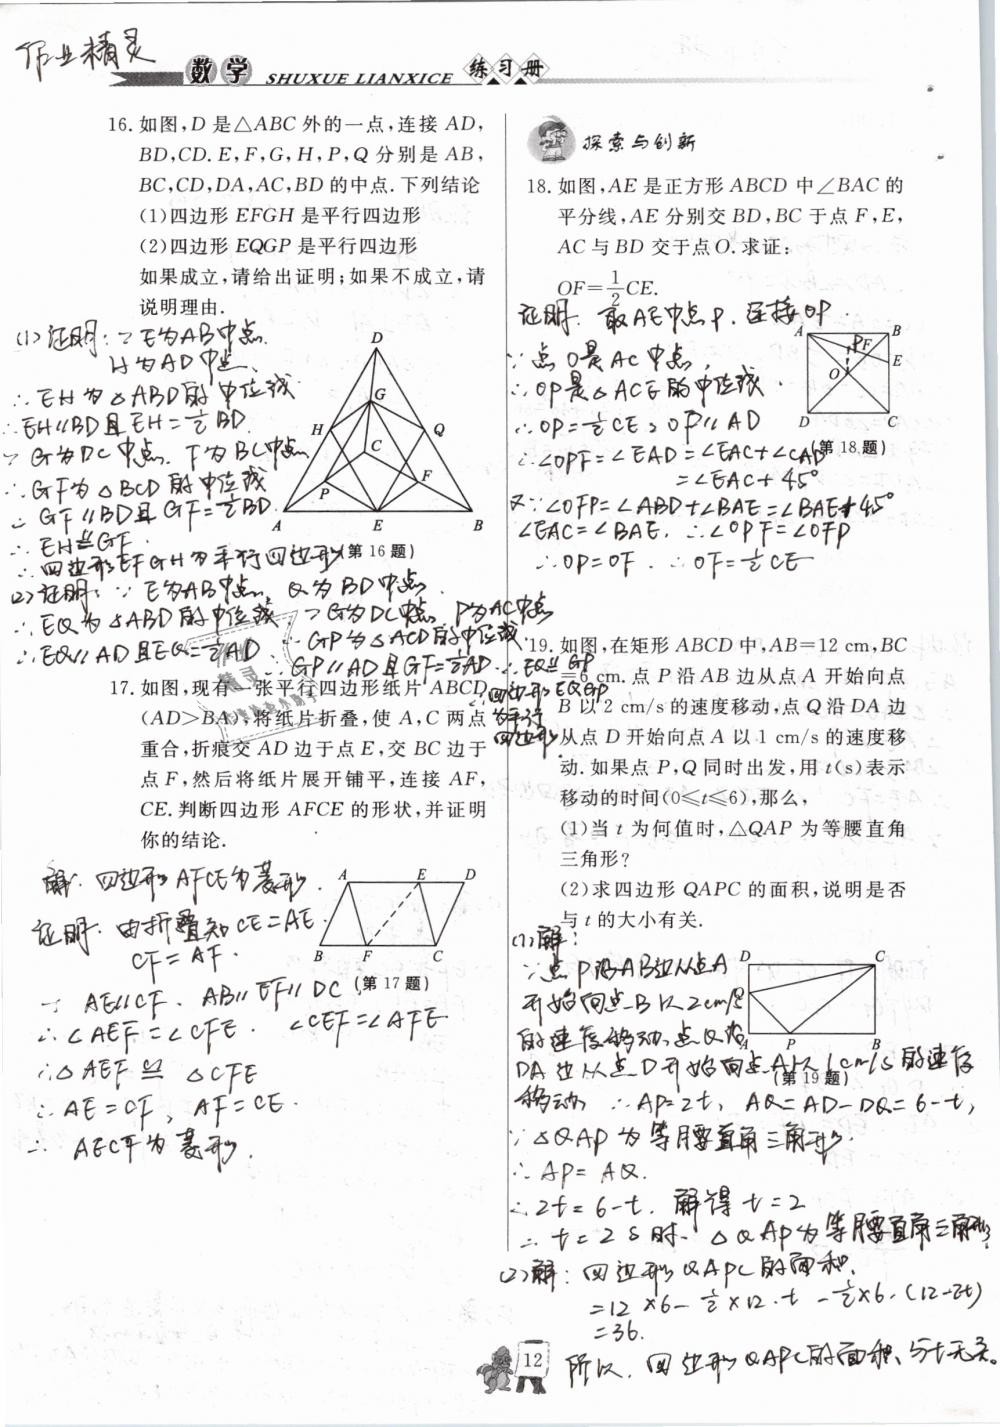 作业精灵
数学 SHUXUE LIANXICE 练习册
16. 如图,D 是△ABC 外的一点,连接 AD,
BD,CD. E,F,G,H,P,Q 分别是 AB,
BC,CD,DA,AC,BD 的中点. 下列结论
(1)四边形 EFGH 是平行四边形
(2)四边形 EQGP 是平行四边形
如果成立,请给出证明;如果不成立,请
说明理由.
(1)证明:∵E为AB中点.
H为AD中点、
∴EH为△ABD的中位线
∴EH∥BD且EH=½BD.
∵G为DC中点. F为BC中点
∴GF为△BCD的中位线
∴GF∥BD且GF=½BD.
∴EH≝GF.
∴四边形EFGH为平行四边形
D
G
H
Q
C
P
F
A
E
B
(第 16 题)
(2)证明:∵E为AB中点, Q为BD中点.
∴EQ为△ABD的中位线 ∵G为DC中点, P为AC中点
∴EQ∥AD且EQ=½AD ∴GP为△ACD的中位线
∴GP∥AD且GF=½AD ∴EQ≝GP
∴四边形EQGP
为平行
四边形
17. 如图,现有一张平行四边形纸片 ABCD
(AD>BA),将纸片折叠,使 A,C 两点
重合,折痕交 AD 边于点 E,交 BC 边于
点 F,然后将纸片展开铺平,连接 AF,
CE. 判断四边形 AFCE 的形状,并证明
你的结论.
解:四边形AFCE为菱形.
证明:由折叠知CE=AE.
CF=AF.
∵AE∥CF. AB∥EF∥DC
∴∠AEF=∠CFE. ∠CEF=∠AFE
∴△AEF≌△CFE
∴AE=CF, AF=CE.
∴AECF为菱形.
A
E
D
B
F
C
(第 17 题)
探索与创新
18. 如图,AE 是正方形 ABCD 中∠BAC 的
平分线,AE 分别交 BD,BC 于点 F,E,
AC 与 BD 交于点O. 求证:
OF=½CE.
证明:取AE中点P.连接OP
∵点O是AC中点,
∴OP是△ACE的中位线
∴OP=½CE, OP∥AD
∴∠OPF=∠EAD=∠EAC+∠CAD
=∠EAC+45°
又∵∠OFP=∠ABD+∠BAE=∠BAE+45°
∠EAC=∠BAE, ∴∠OPF=∠OFP
∴OP=OF. ∴OF=½CE
A
B
P
F
E
O
D
C
(第 18 题)
19. 如图,在矩形 ABCD 中,AB=12 cm,BC
=6 cm. 点 P 沿 AB 边从点 A 开始向点
B 以 2 cm/s 的速度移动,点 Q 沿 DA 边
从点 D 开始向点 A 以 1 cm/s 的速度移
动. 如果点 P,Q 同时出发,用 t(s)表示
移动的时间(0≤t≤6),那么,
(1)当 t 为何值时,△QAP 为等腰直角
三角形?
(2)求四边形 QAPC 的面积,说明是否
与 t 的大小有关.
(1)解:
∵点P沿AB边从点A
开始向点B以2cm/s
的速度移动,点Q沿
DA边从点D开始向点A以1cm/s的速度
移动 ∴AP=2t, AQ=AD-DQ=6-t,
∵△QAP为等腰直角三角形.
∴AP=AQ.
∴2t=6-t. 解得t=2
∴t=2s时.△QAP为等腰直角三角形.
D
C
Q
A
P
B
(第 19 题)
(2)解:四边形QAPC的面积.
=12×6-½×12·t-½×6·(12-2t)
=36.
所以,四边形QAPC的面积、与t无关。
12